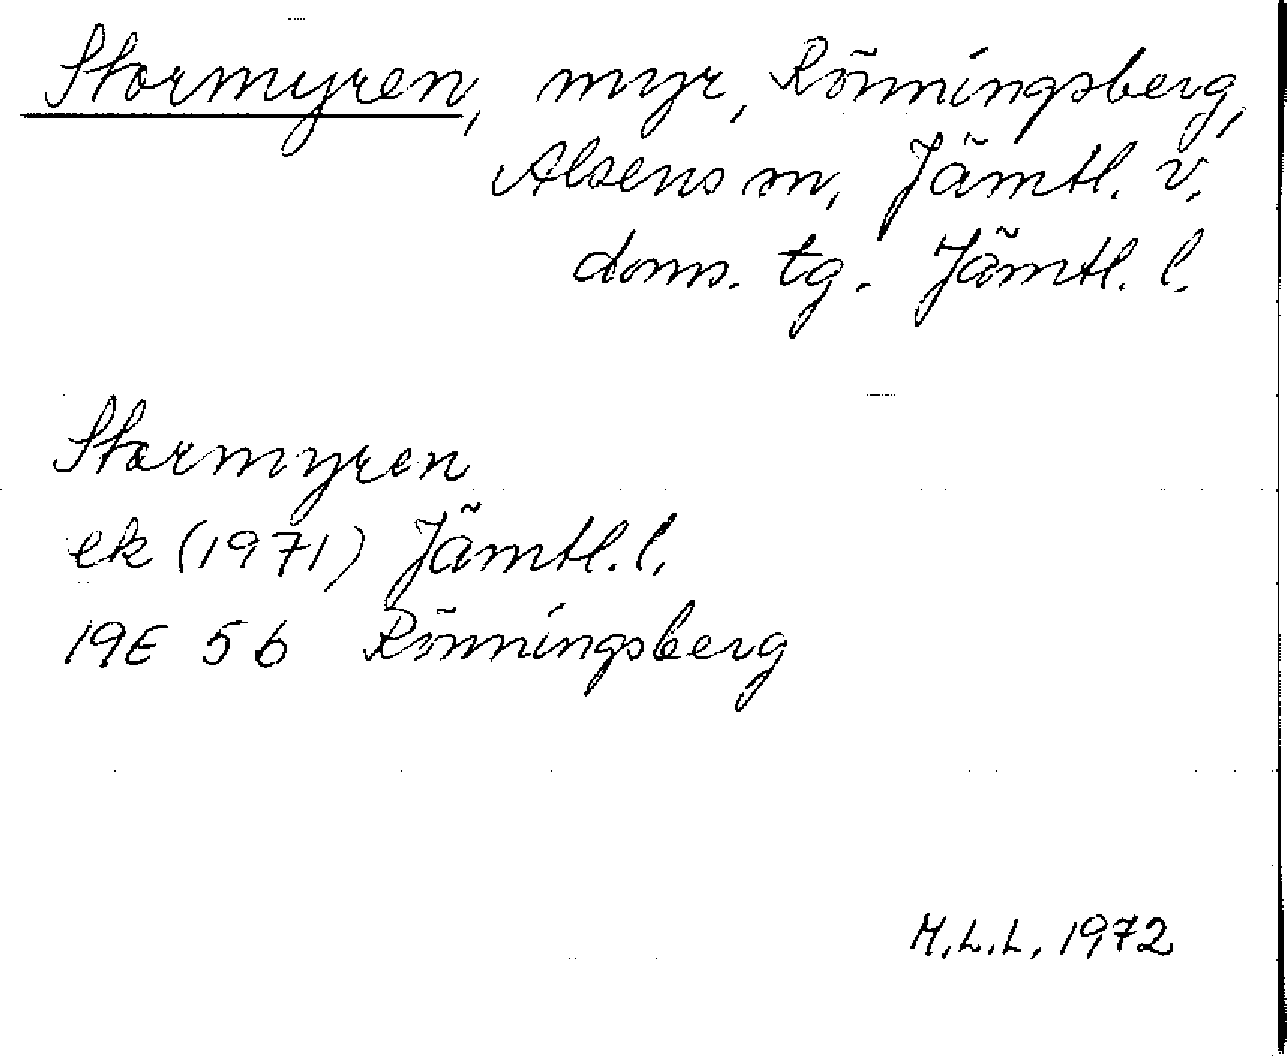 Stormyren, myr, Rönningsberg,
Alsens sn, Jämtl. v.
doms. tg. Jämtl. l.
Stormyren
ek (1971) Jämtl. l.
19E 5b Rönningsberg
M.L.L. 1972